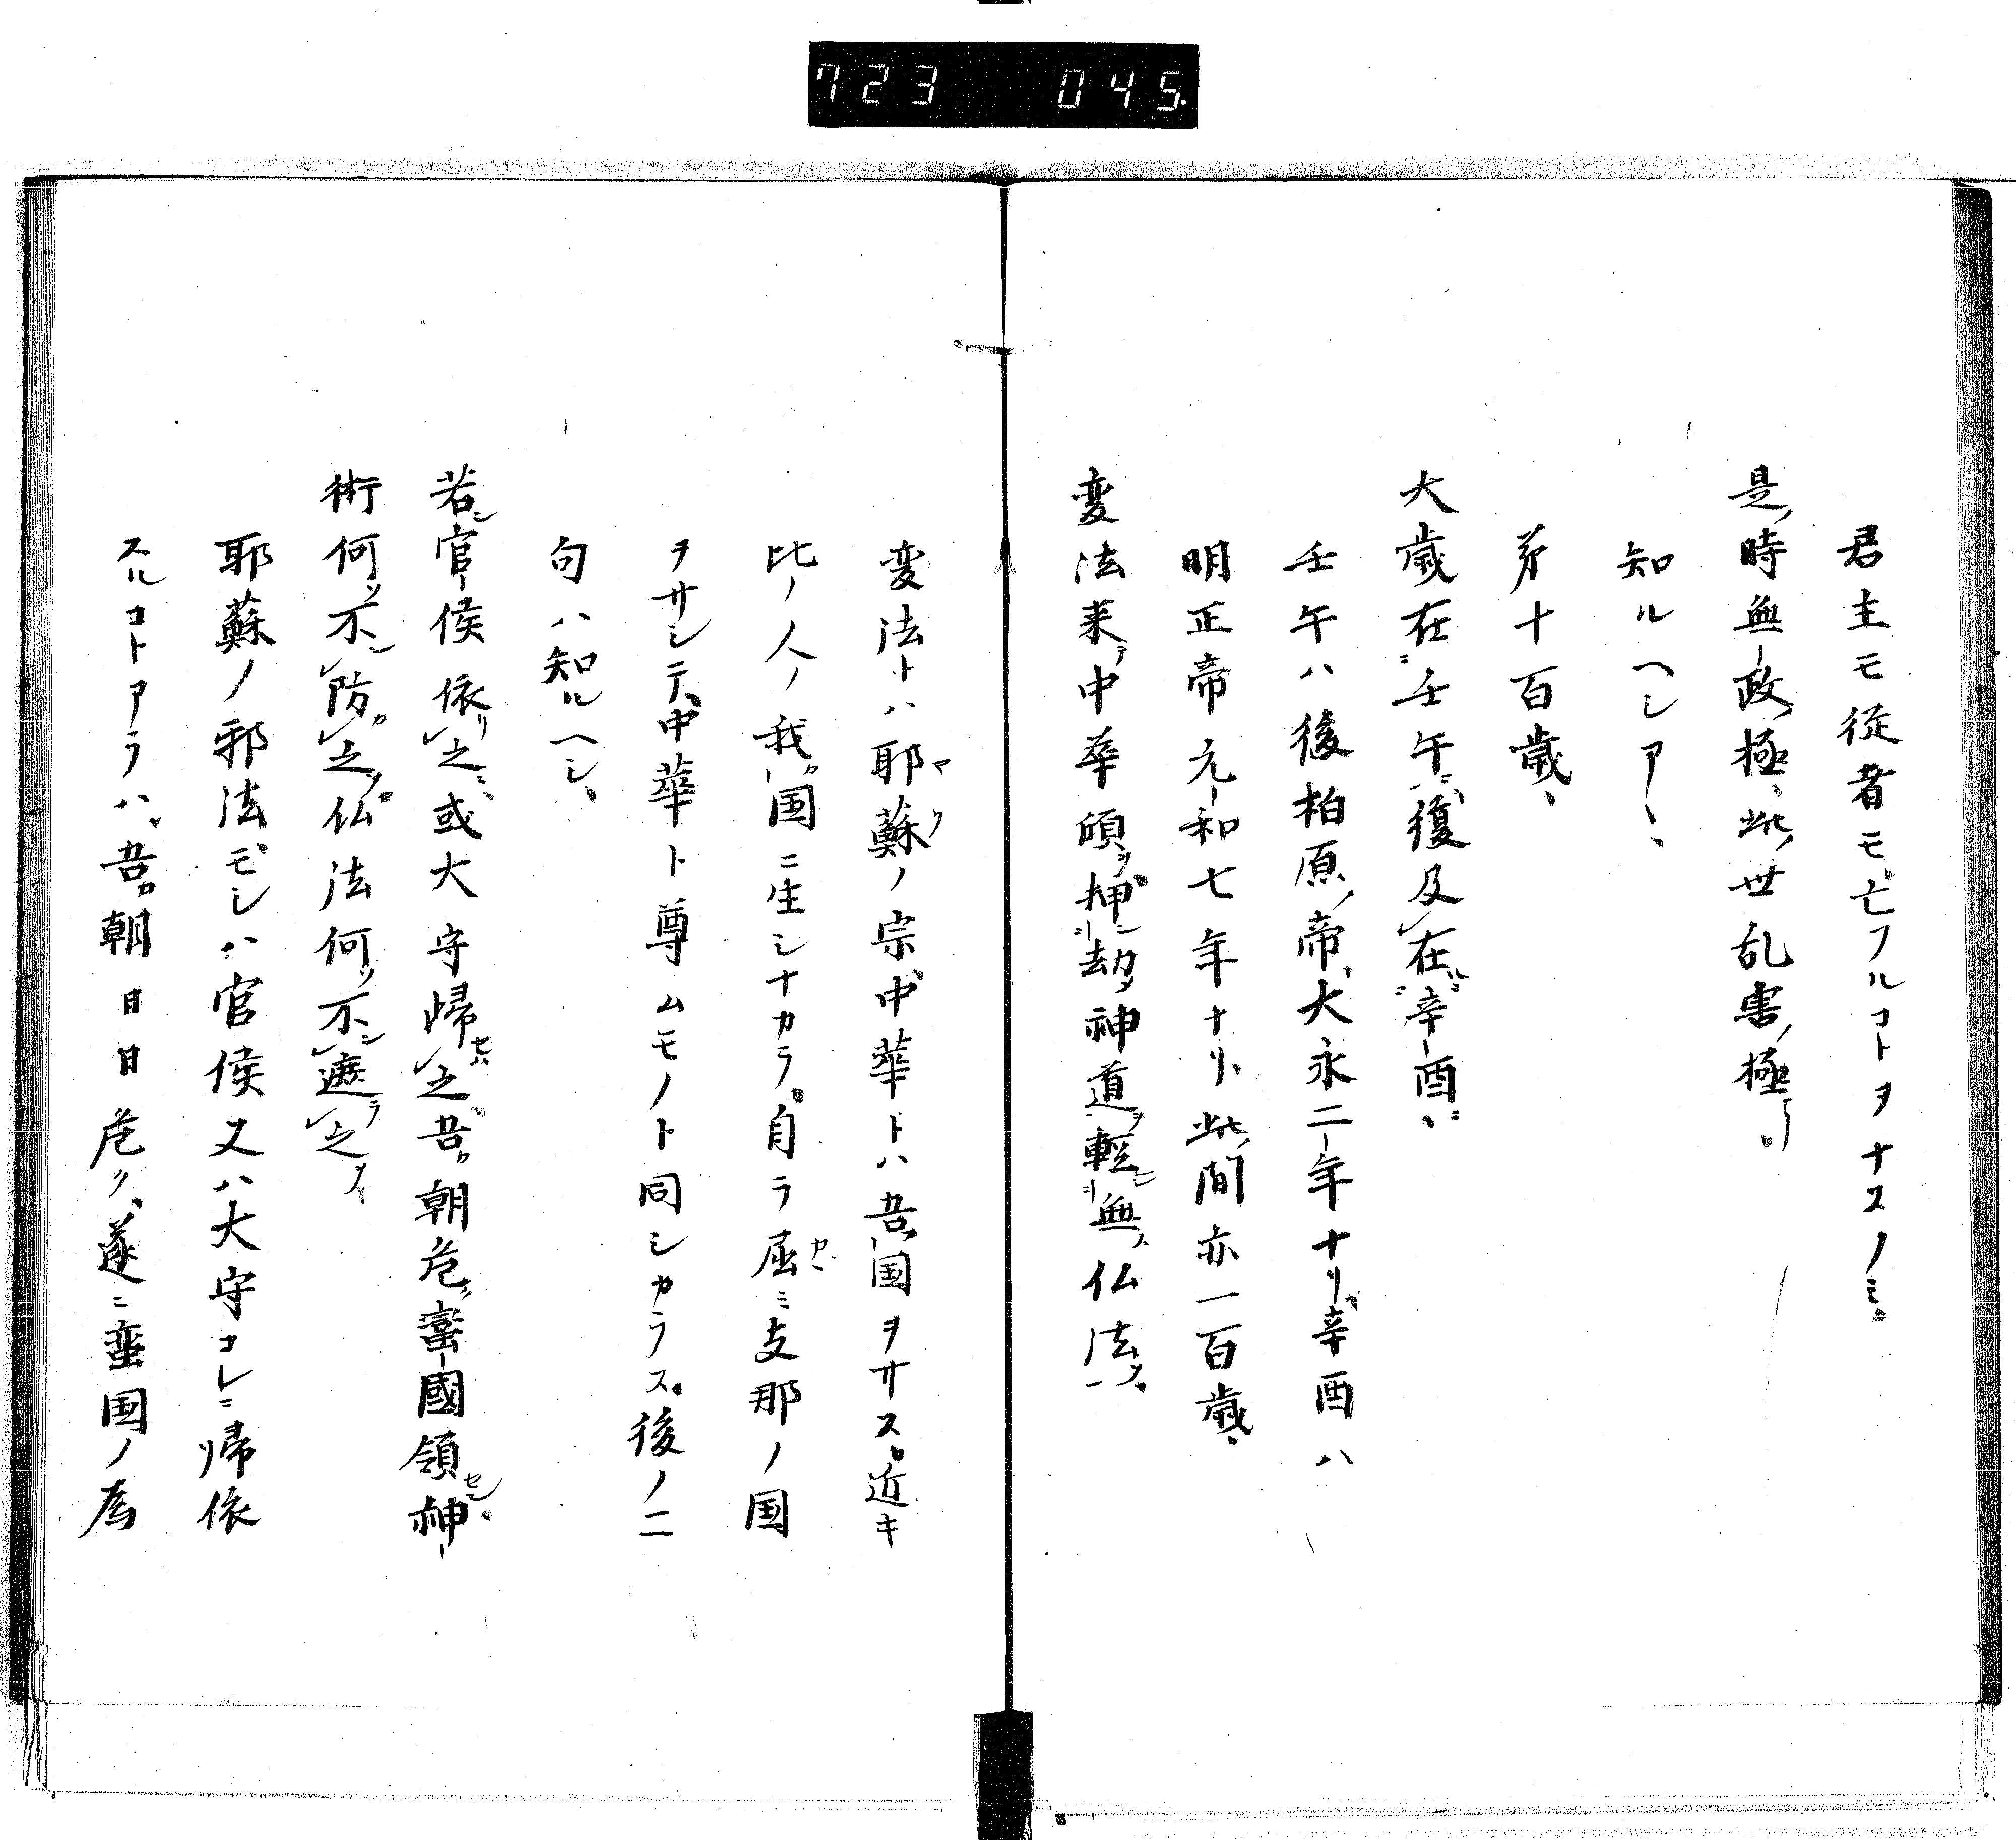 723 045.
君主モ従者モ亡フルコトヲナスノミ
是時無政極此世乱害極
知ルヘシアヽ
第十百歳
大歳在壬午復及在辛酉
壬午ハ後柏原帝大永二年ナリ辛酉ハ
明正帝元和七年ナリ此間亦一百歳
変法来テ中華頋ヲ押シ劫メ神道ヲ軽シ無ス仏法ヲ
変法トハ耶蘇ノ宗中華トハ吾国ヲサス近キ
比ノ人ノ我カ国ニ生シナカラ自ラ屈ミ支那ノ国
ヲサシテ中華ト尊ムモノト同シカラス後ノ二
句ハ知ルヘシ
若シ官侯依リ之ニ或大守帰セハ之吾カ朝危ク蜜國領セン神
術何ソ不ン防カ之ヲ仏法何ソ不ン遮ラ之ヲ
耶蘇ノ邪法モシハ官侯又ハ大守コレニ帰依
スルコトアラハ吾カ朝日日危ク遂ニ蛮国ノ為